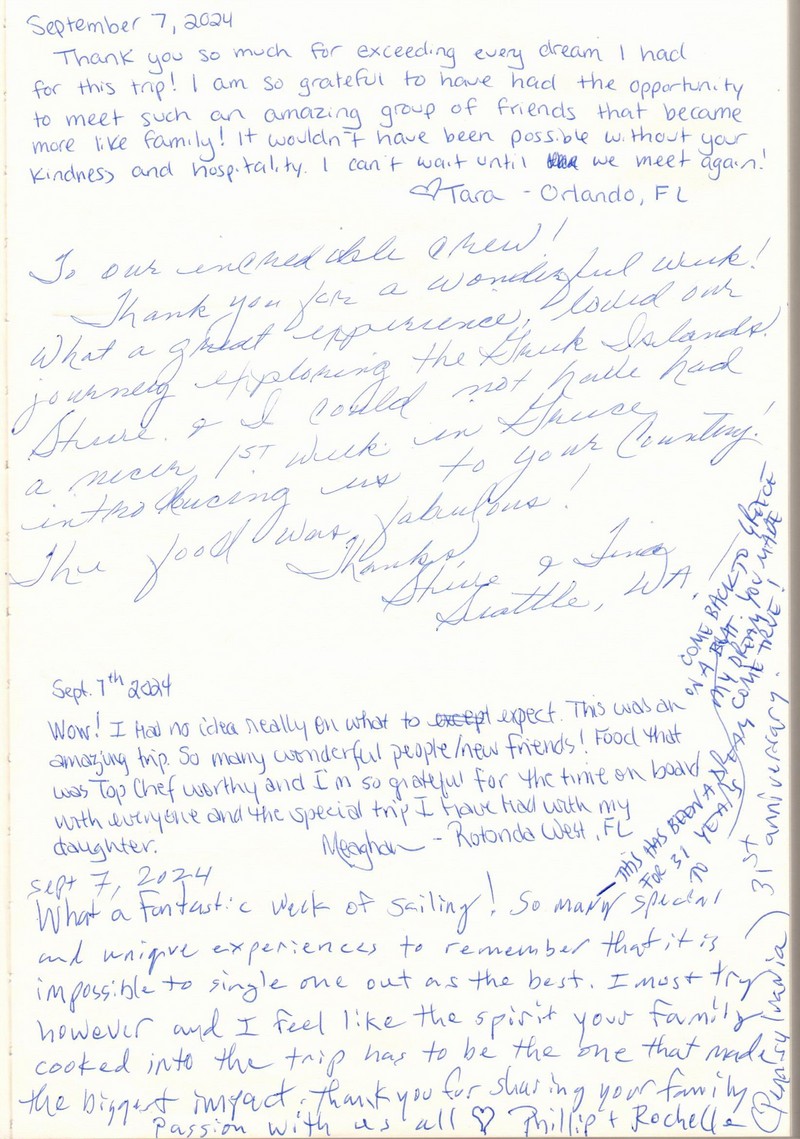 September 7, 2024
Thank you so much for exceeding every dream I had
for this trip! I am so grateful to have had the opportunity
to meet such an amazing group of friends that became
more like family! It wouldn't have been possible without your
kindness and hospitality. I can't wait until we meet again!
♡Tara - Orlando, FL
To our incredible crew!
Thank you for a wonderful week!
What a great experience, loved our
journey exploring the Greek Islands.
Steve & I could not have had
a nicer 1ST week in Greece
introducing us to your Country!
The food was fabulous!
Thanks
Steve & Tina
Seattle, WA.
Sept. 7th 2024
Wow! I Had no idea really on what to except expect. This was an
amazing trip. So many wonderful people/new friends! Food that
was Top Chef worthy and I'm so grateful for the time on board
with everyone and the special trip I have had with my
daughter.
Meaghan - Rotonda West, FL
sept 7, 2024
What a fantastic week of sailing! So many special
and unique experiences to remember that it is
impossible to single one out as the best. I must try
however and I feel like the spirit your family
cooked into the trip has to be the one that made
the biggest impact. Thank you for sharing your family
passion with us all ♡ Phillip + Rochelle
(Pennsylvania) 31st anniversary.
THIS HAS BEEN A DREAM
FOR 31 YEARS
TO COME BACK TO GREECE
ON A BOAT.
MY DREAM YOU MADE
COME TRUE!